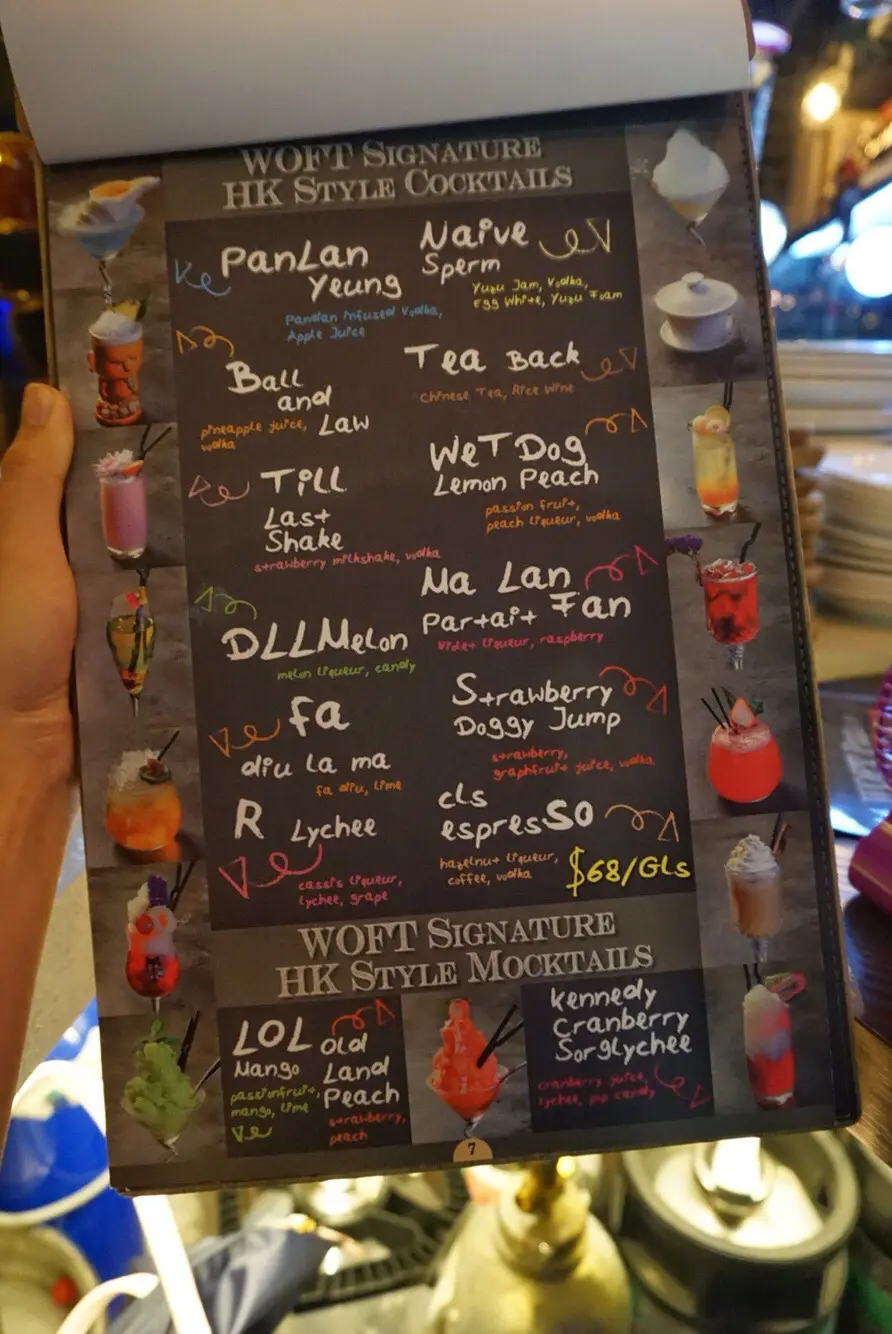 WOFT SIGNATURE
HK STYLE COCKTAILS
PanLan
Yeung
Pandan infused Vodka,
Apple Juice
Naive
Sperm
Yuzu Jam, Vodka,
Egg White, Yuzu Foam
Ball
and
Law
pineapple juice,
vodka
Tea Back
Chinese Tea, Rice Wine
Till
Last
Shake
strawberry milkshake, vodka
WeT Dog
Lemon Peach
passion fruit,
peach liqueur, vodka
DLLMelon
melon liqueur, candy
Ma Lan
Partait Fan
violet liqueur, raspberry
fa
diu la ma
fa diu, lime
Strawberry
Doggy Jump
strawberry,
graphfruit juice, vodka
R Lychee
cassis liqueur,
lychee, grape
cls
espresso
hazelnut liqueur,
coffee, vodka
$68/GLs
WOFT SIGNATURE
HK STYLE MOCKTAILS
LOL
Mango
passionfruit,
mango, lime
Old
Land
Peach
strawberry,
peach
kennedy
Cranberry
Sorglychee
cranberry juice,
lychee, pop candy
7